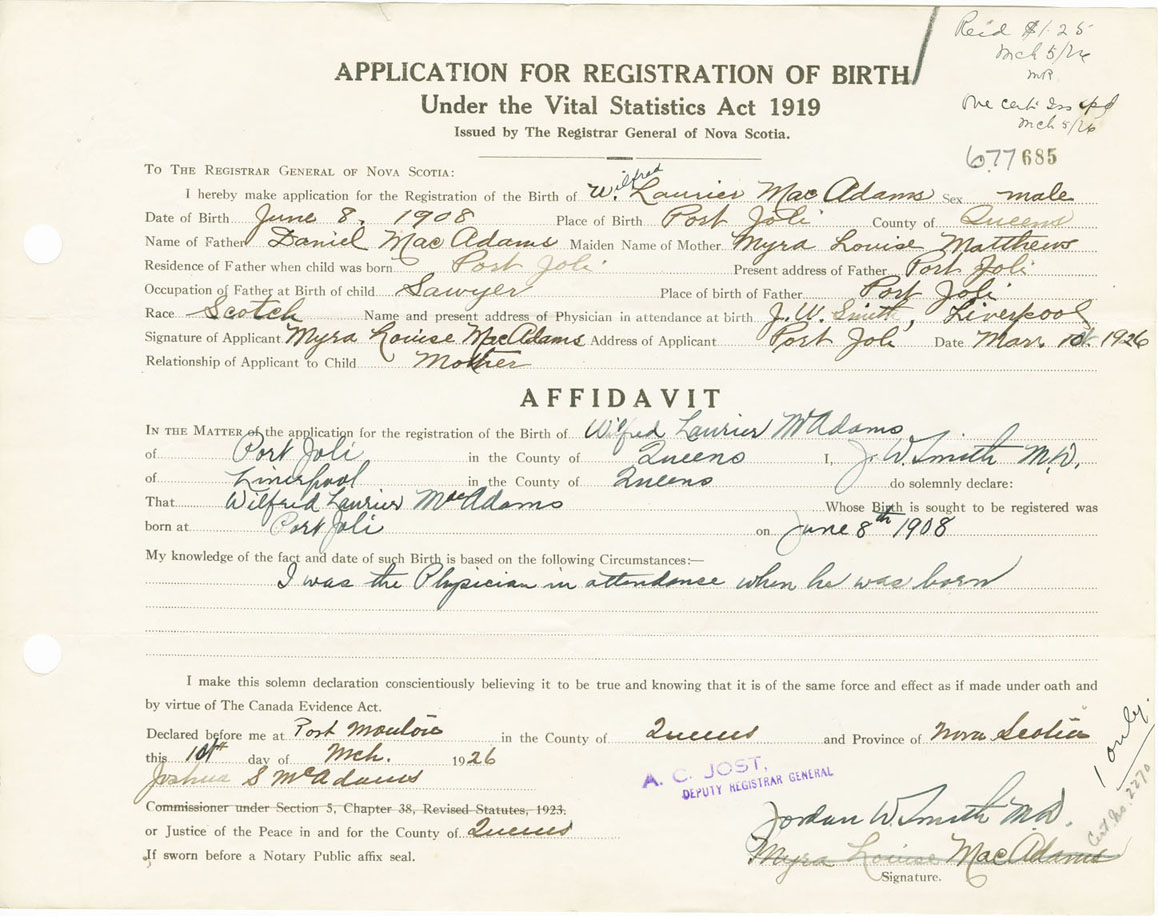 Paid $1.25
Mch 5/26
MR
One cert Iss
Mch 5/26
677685
APPLICATION FOR REGISTRATION OF BIRTH
Under the Vital Statistics Act 1919
Issued by The Registrar General of Nova Scotia.
TO THE REGISTRAR GENERAL OF NOVA SCOTIA:
I hereby make application for the Registration of the Birth of Wilfred Laurier MacAdams Sex male
Date of Birth June 8, 1908 Place of Birth Port Joli County of Queens
Name of Father Daniel MacAdams Maiden Name of Mother Myra Louise Matthews
Residence of Father when child was born Port Joli Present address of Father Port Joli
Occupation of Father at Birth of child Sawyer Place of birth of Father Port Joli
Race Scotch Name and present address of Physician in attendance at birth J. W. Smith, Liverpool
Signature of Applicant Myra Louise MacAdams Address of Applicant Port Joli Date Mar. 1st. 1926
Relationship of Applicant to Child Mother
AFFIDAVIT
IN THE MATTER of the application for the registration of the Birth of Wilfred Laurier McAdams
of Port Joli in the County of Queens I, J. W. Smith M.D.
of Liverpool in the County of Queens do solemnly declare:
That Wilfred Laurier MacAdams Whose Birth is sought to be registered was
born at Port Joli on June 8th 1908
My knowledge of the fact and date of such Birth is based on the following Circumstances:—
I was the Physician in attendance when he was born
I make this solemn declaration conscientiously believing it to be true and knowing that it is of the same force and effect as if made under oath and
by virtue of The Canada Evidence Act.
Declared before me at Port Mouton in the County of Queens and Province of Nova Scotia
this day of Mch. 1926
Joshua S McAdams
Commissioner under Section 5, Chapter 38, Revised Statutes, 1923.
or Justice of the Peace in and for the County of Queens
If sworn before a Notary Public affix seal.
A. C. JOST,
DEPUTY REGISTRAR GENERAL
Jordan W. Smith M.D.
Myra Louise MacAdams
Signature.
1 only.
Cert. No. 2270